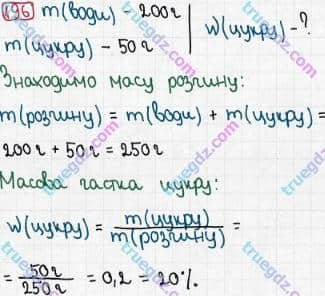 196 m(води) - 200г
m(цукру) - 50г
w(цукру) - ?
Знаходимо масу розчину:
m(розчину) = m(води) + m(цукру) =
200г + 50г = 250г
Масова частка цукру:
w(цукру) = m(цукру) / m(розчину) =
= 50г / 250г = 0,2 = 20%.
truegdz.com